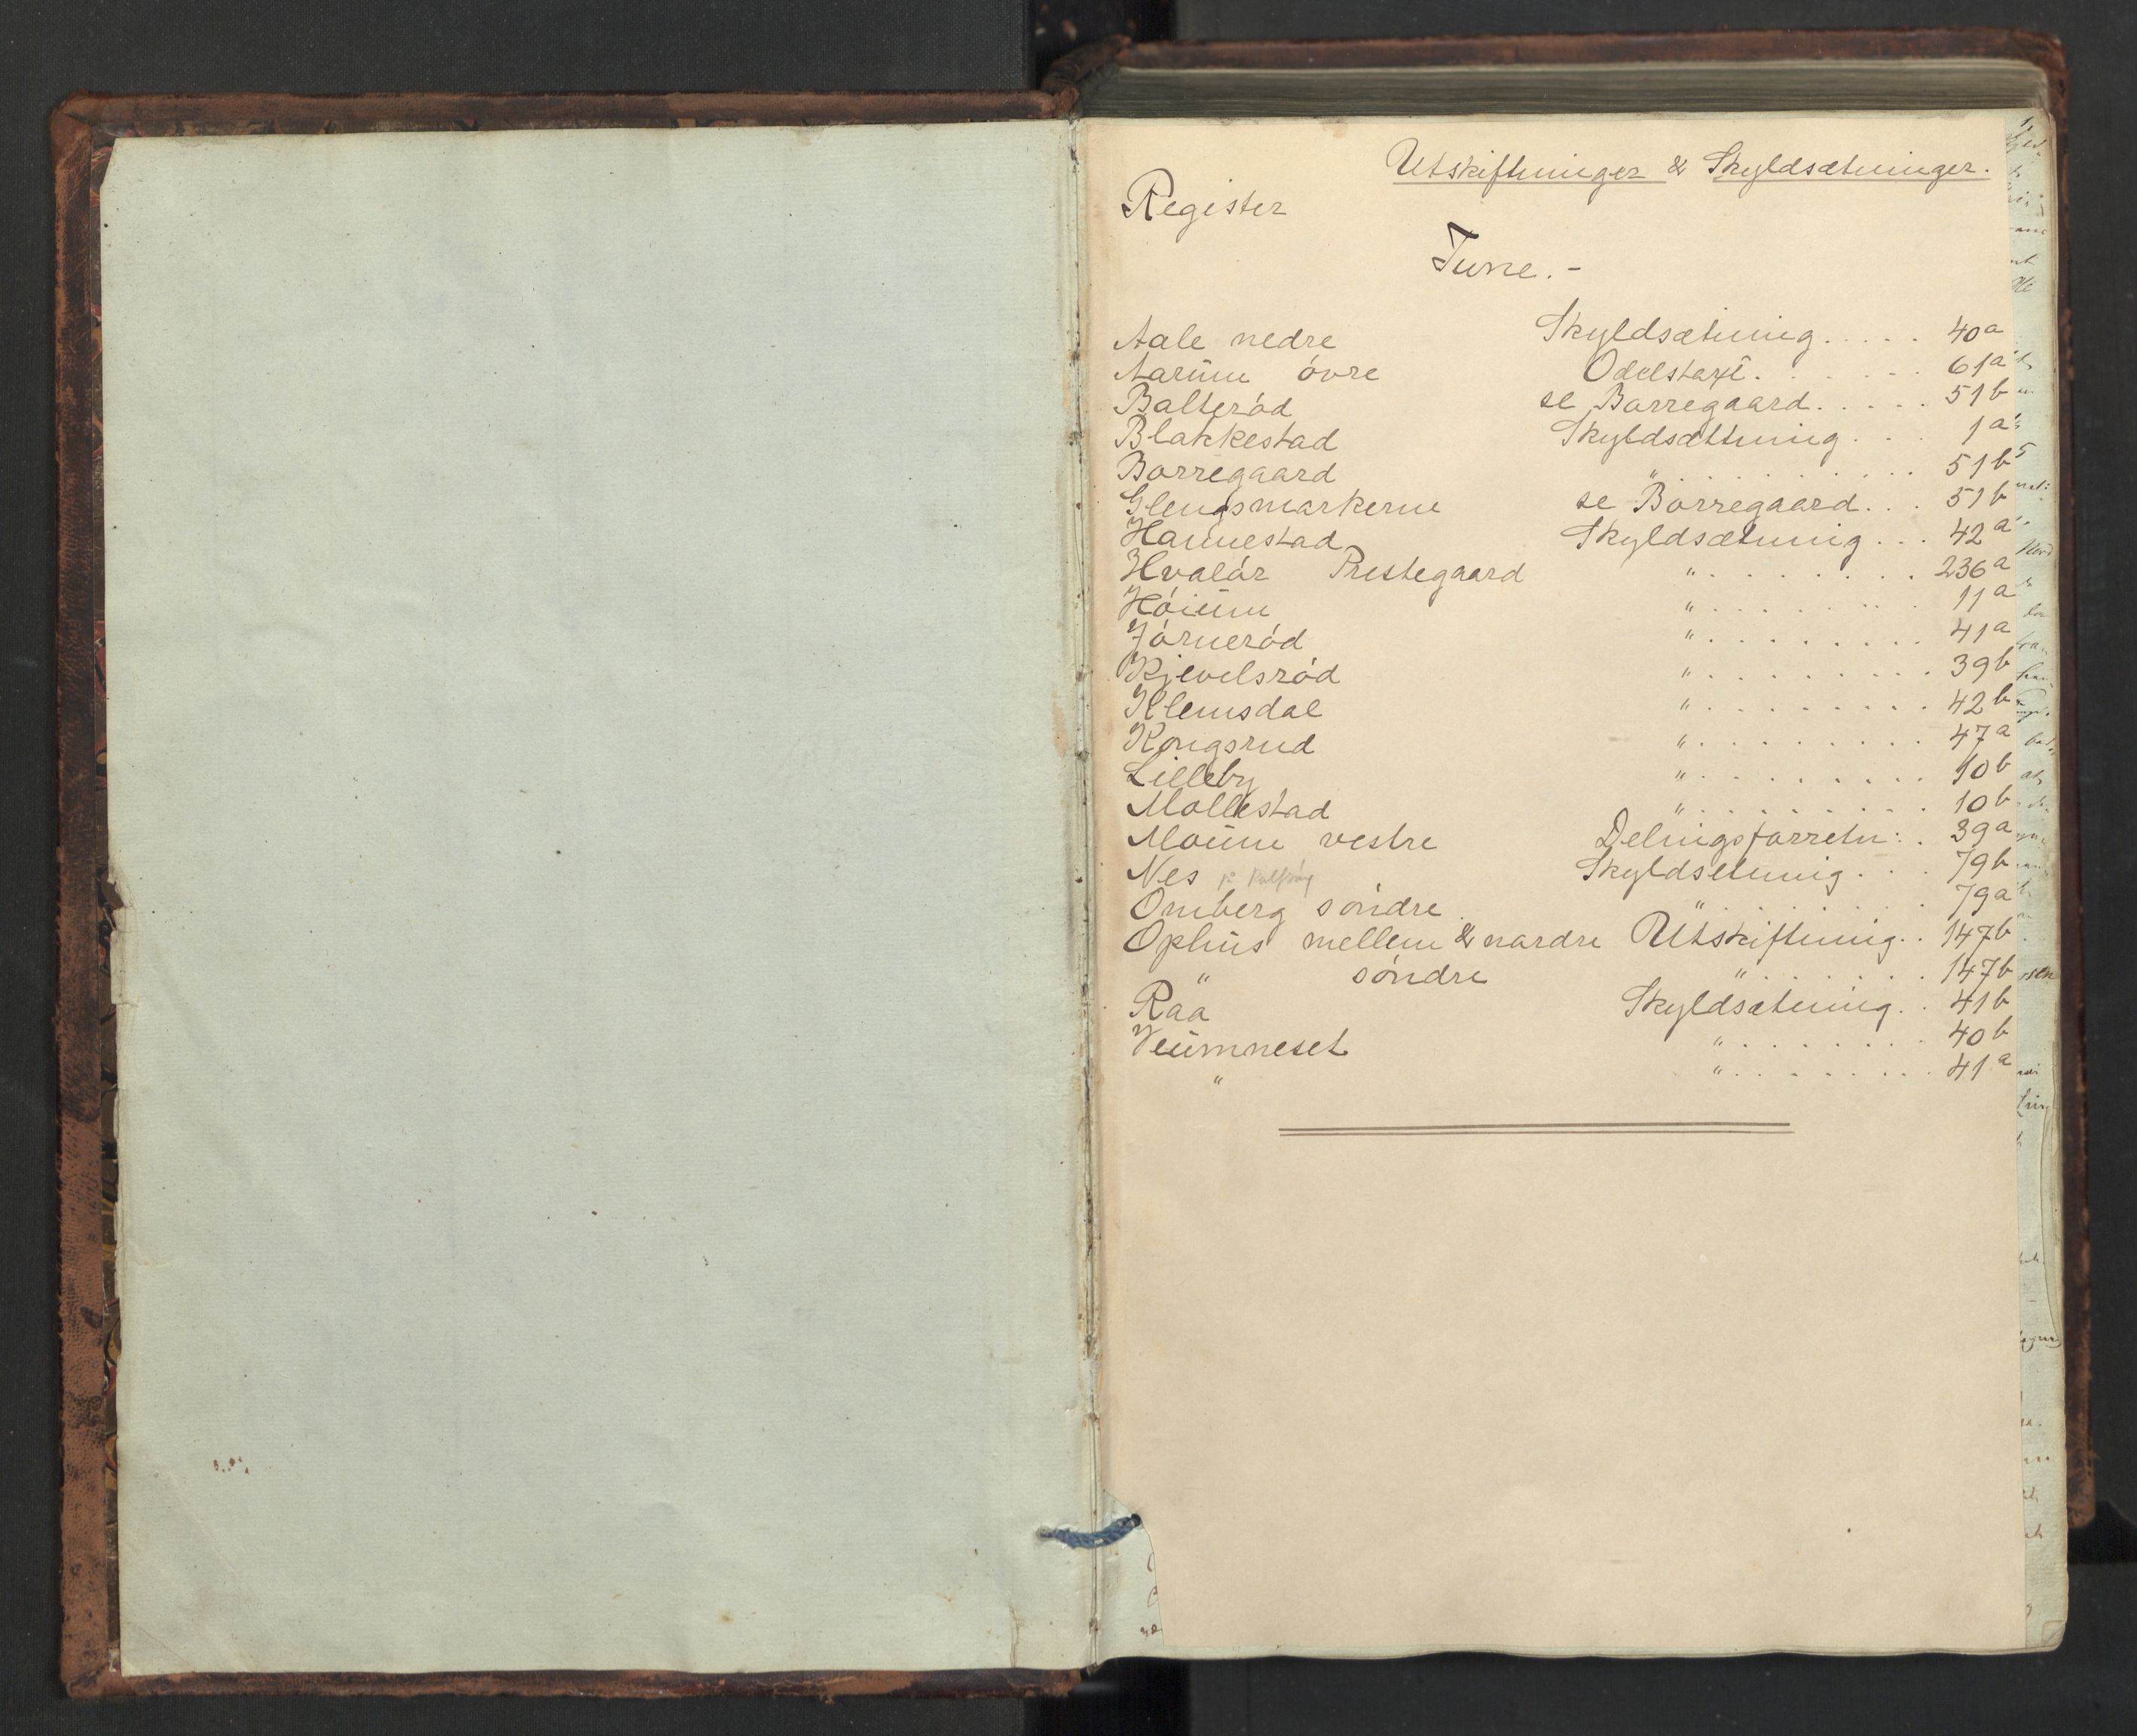 Utskiftninger & Skyldsætninger.
Register
Tune.-
Aale nedre Skyldsætning..... 40a
Aarüm óvre Odelstaxt....... 61a
Balteród se Borregaard..... 51b
Blakkestad Skyldsættning... 1a
Borregaard " ........ 51b
Glengsmarkerne se Borregaard... 51b
Hannestad Skyldsætning... 42a
Hvalór Prestegaard " ........ 236a
Hóiüm " ........ 11a
Jórneród " ........ 41a
Kjevelsród " ......... 39b
Klemsdal " ......... 42b
Kongsrud " ......... 47a
Lilleby " ......... 10b
Mollestad " ......... 10b
Moüm vestre Delingsforretn:. 39a
Nes Skyldsetning... 79b
Omberg sóndre " ........ 79a
Ophüs mellem & nordre Utskiftning.. 147b
" sóndre " ........ 147b
Raa Skyldsætning.. 41b
Veümneset " ........ 40b
" " ........ 41a